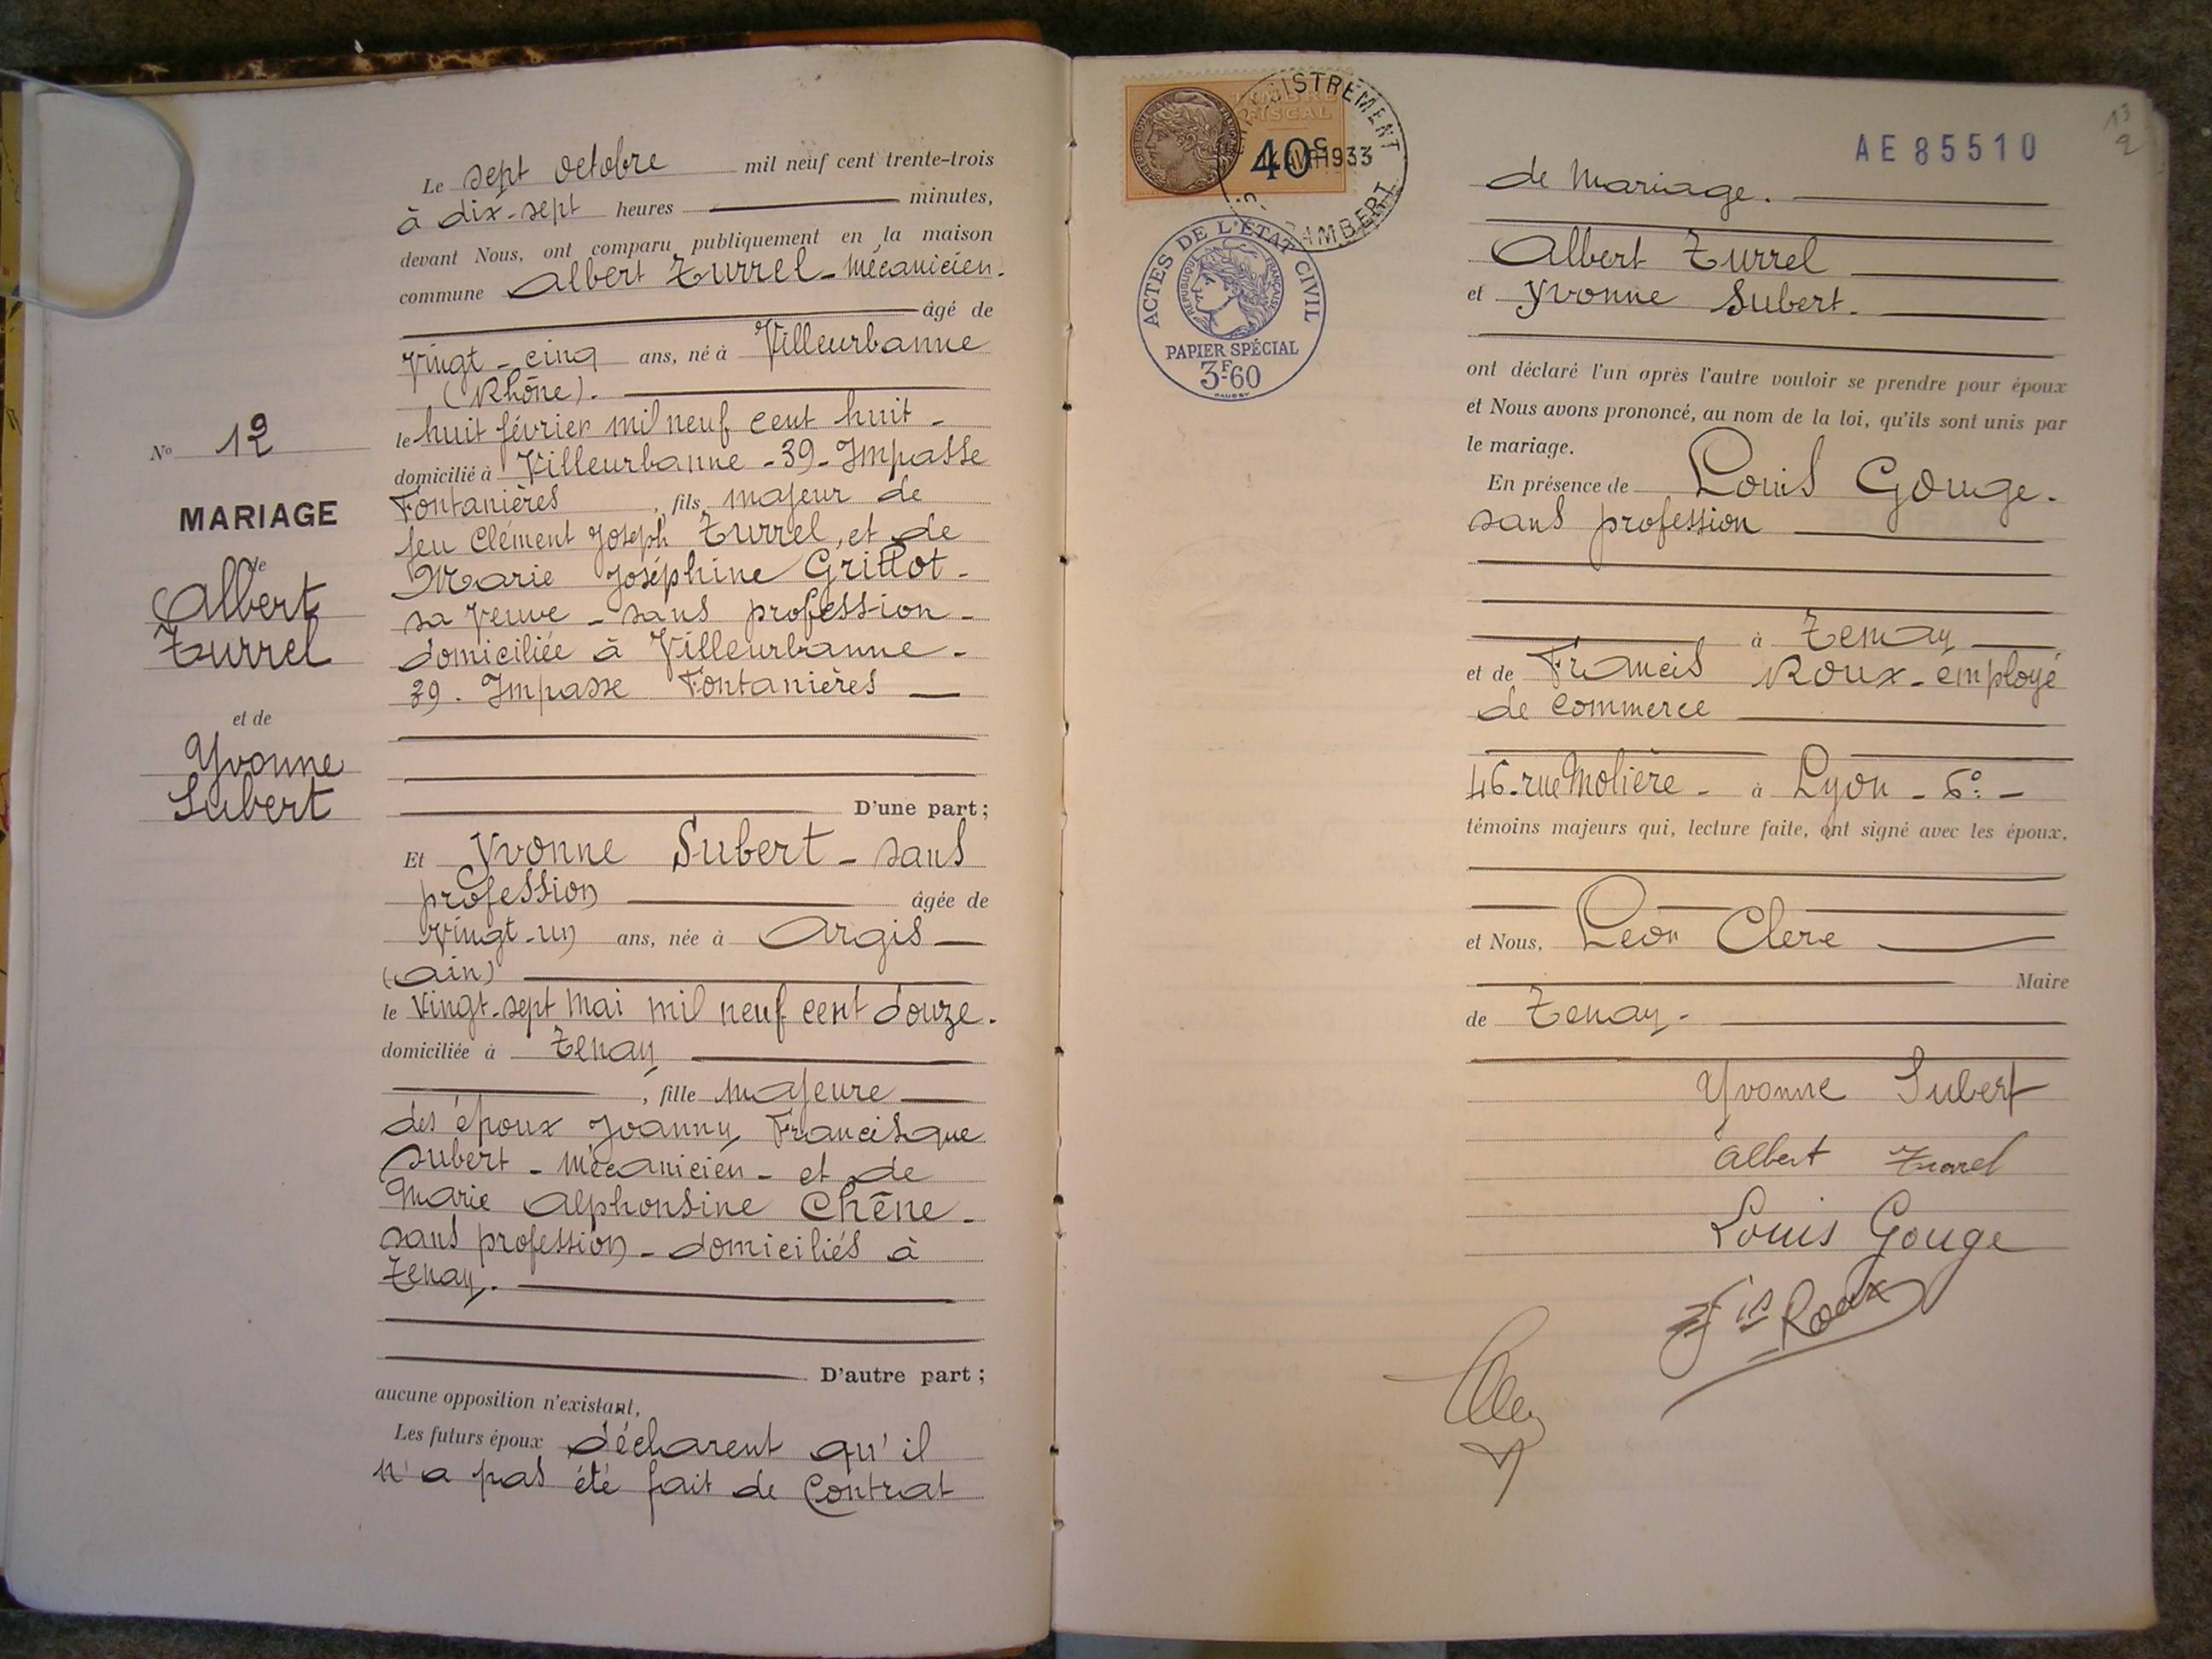 Le sept octobre mil neuf cent trente-trois
à dix-sept heures minutes,
devant Nous, ont comparu publiquement en la maison
commune Albert Turrel - mécanicien.
âgé de
vingt-cinq ans, né à Villeurbanne
(Rhône).
le huit février mil neuf cent huit -
domicilié à Villeurbanne - 39 - Impasse
Fontanières, fils majeur de
feu Clément Joseph Turrel, et de
Marie Joséphine Grillot -
sa veuve - sans profession -
domiciliée à Villeurbanne -
39. Impasse Fontanières
D'une part;
No 12
MARIAGE
de
Albert
Turrel
et de
Yvonne
Subert
Et Yvonne Subert - sans
profession âgée de
vingt-un ans, née à Argis
(Ain)
le vingt-sept mai mil neuf cent douze.
domiciliée à Tenay
, fille majeure
des époux Joanny Francisque
Subert - mécanicien - et de
Marie Alphonsine Chêne -
sans profession - domiciliés à
Tenay.
D'autre part;
aucune opposition n'existant,
Les futurs époux déclarent qu'il
n'a pas été fait de contrat
TIMBRE
FISCAL
40c
1933
ACTES DE L'ÉTAT CIVIL
RÉPUBLIQUE FRANÇAISE
PAPIER SPÉCIAL
3F-60
AE 85510
de mariage.
Albert Turrel
et Yvonne Subert.
ont déclaré l'un après l'autre vouloir se prendre pour époux
et Nous avons prononcé, au nom de la loi, qu'ils sont unis par
le mariage.
En présence de Louis Gouge.
sans profession
à Tenay
et de Francis Roux - employé
de commerce
46 - rue Molière - à Lyon - 6e -
témoins majeurs qui, lecture faite, ont signé avec les époux,
et Nous, Léon Clerc
Maire
de Tenay -
Yvonne Subert
Albert Turrel
Louis Gouge
Fis Roux